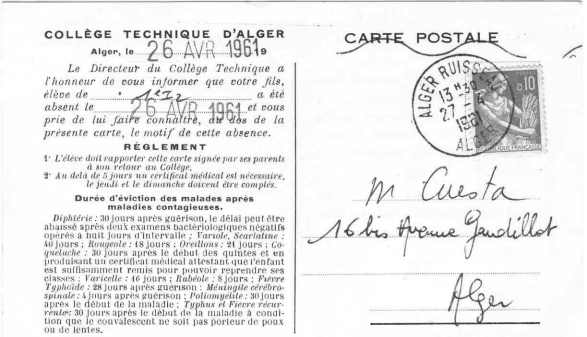 COLLÈGE TECHNIQUE D'ALGER
Alger, le 26 AVR 1961 9
Le Directeur du Collège Technique a
l'honneur de vous informer que votre fils,
élève de a été
absent le 26 AVR 1961 et vous
prie de lui faire connaître, au dos de la
présente carte, le motif de cette absence.
RÈGLEMENT
1° L'élève doit rapporter cette carte signée par ses parents
à son retour au Collège.
2° Au delà de 5 jours un certificat médical est nécessaire,
le jeudi et le dimanche doivent être comptés.
Durée d'éviction des malades après
maladies contagieuses.
Diphtérie : 30 jours après guérison, le délai peut être
abaissé après deux examens bactériologiques négatifs
opérés à huit jours d'intervalle ; Variole, Scarlatine :
40 jours ; Rougeole : 18 jours ; Oreillons : 21 jours ; Co-
queluche : 30 jours après le début des quintes et en
produisant un certificat médical attestant que l'enfant
est suffisamment remis pour pouvoir reprendre ses
classes ; Varicelle : 16 jours ; Rubéole : 8 jours ; Fièvre
Typhoïde : 28 jours après guérison ; Méningite cérébro-
spinale : 4 jours après guérison ; Poliomyélite : 30 jours
après le début de la maladie ; Typhus et Fièvre récur-
rente : 30 jours après le début de la maladie à condi-
tion que le convalescent ne soit pas porteur de poux
ou de lentes.
CARTE POSTALE
ALGER RUISSEAU
13 H 30
27 - 4
1961
ALGER
0,10
M Cuesta
16 bis Avenue Gaudillot
Alger